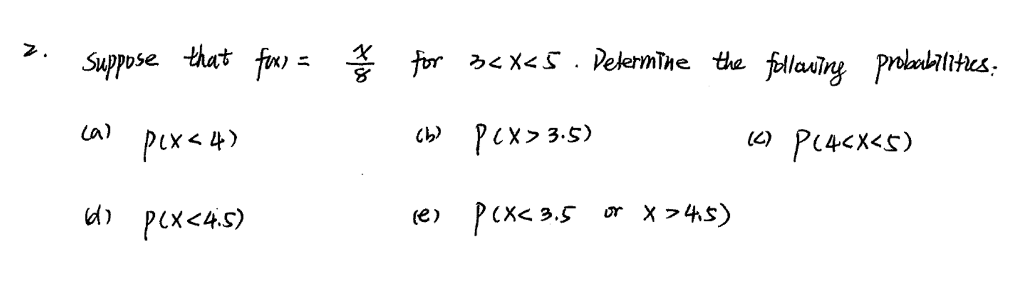 2. Suppose that f(x) = x/8 for 3<X<5. Determine the following probabilities:
(a) P(X<4) (b) P(X>3.5) (c) P(4<X<5)
(d) P(X<4.5) (e) P(X<3.5 or X>4.5)